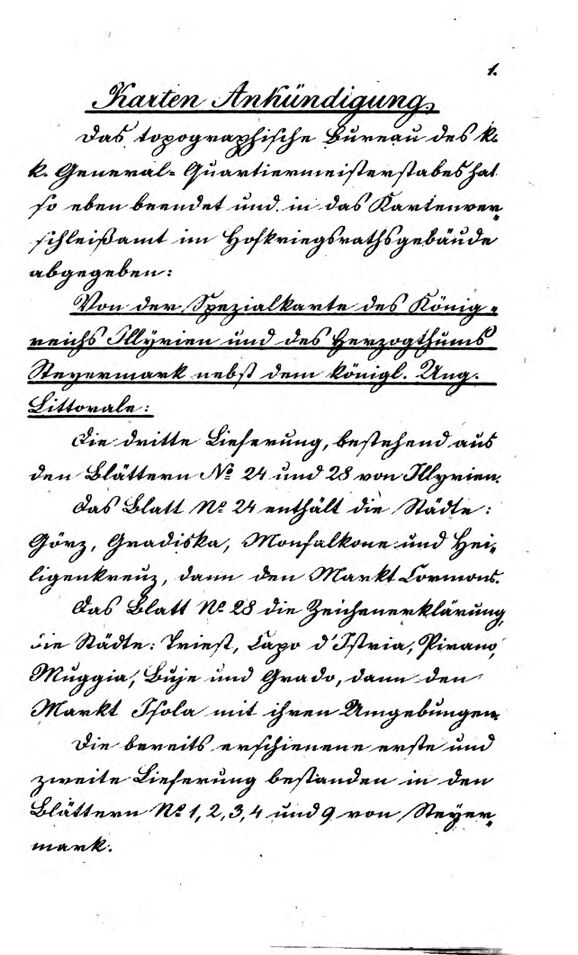 1.
Karten Ankündigung.
Das topographische Bureau des k.
k. General-Quartiermeisterstabes hat
so eben beendet und in das Kartenver-
schleißamt im Hofkriegsrathsgebäude
abgegeben:
Von der Spezialkarte des König-
reichs Illyrien und des Herzogthums
Steyermark nebst dem königl. Ung.
Littorale:
Die dritte Lieferung, bestehend aus
den Blättern No 24 und 28 von Illyrien.
Das Blatt No 24 enthält die Städte:
Görz, Gradiska, Monfalkone und Hei-
ligenkreuz, dann den Markt Cormons.
Das Blatt No 28 die Zeichenerklärung,
die Städte: Triest, Capo d'Istria, Pirano,
Muggia, Buje und Grado, dann den
Markt Isola mit ihren Umgebungen.
Die bereits erschienene erste und
zweite Lieferung bestanden in den
Blättern No 1, 2, 3, 4 und 9 von Steyer-
mark.